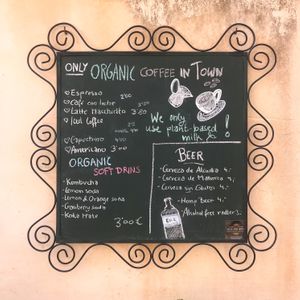 ONLY ORGANIC COFFEE IN TOWN
Espresso 2'00
Café con leche
Latte Macchiato 3'80
Iced Coffee
Capuchino 4'00
Americano 3'00
We only
use plant-based
milks !
ORGANIC
SOFT DRINS
- Kombucha
- Lemon soda
- Lemon & Orange soda
- Cranberry soda
- Kola Mate
3'00€
BEER
- Cerveza de Alcudia 4,-
- Cerveza de Mallorca 4,-
- Cerveza sin Gluten 4,-
- Hemp Beer 4,-
- Alcohol free 3,-